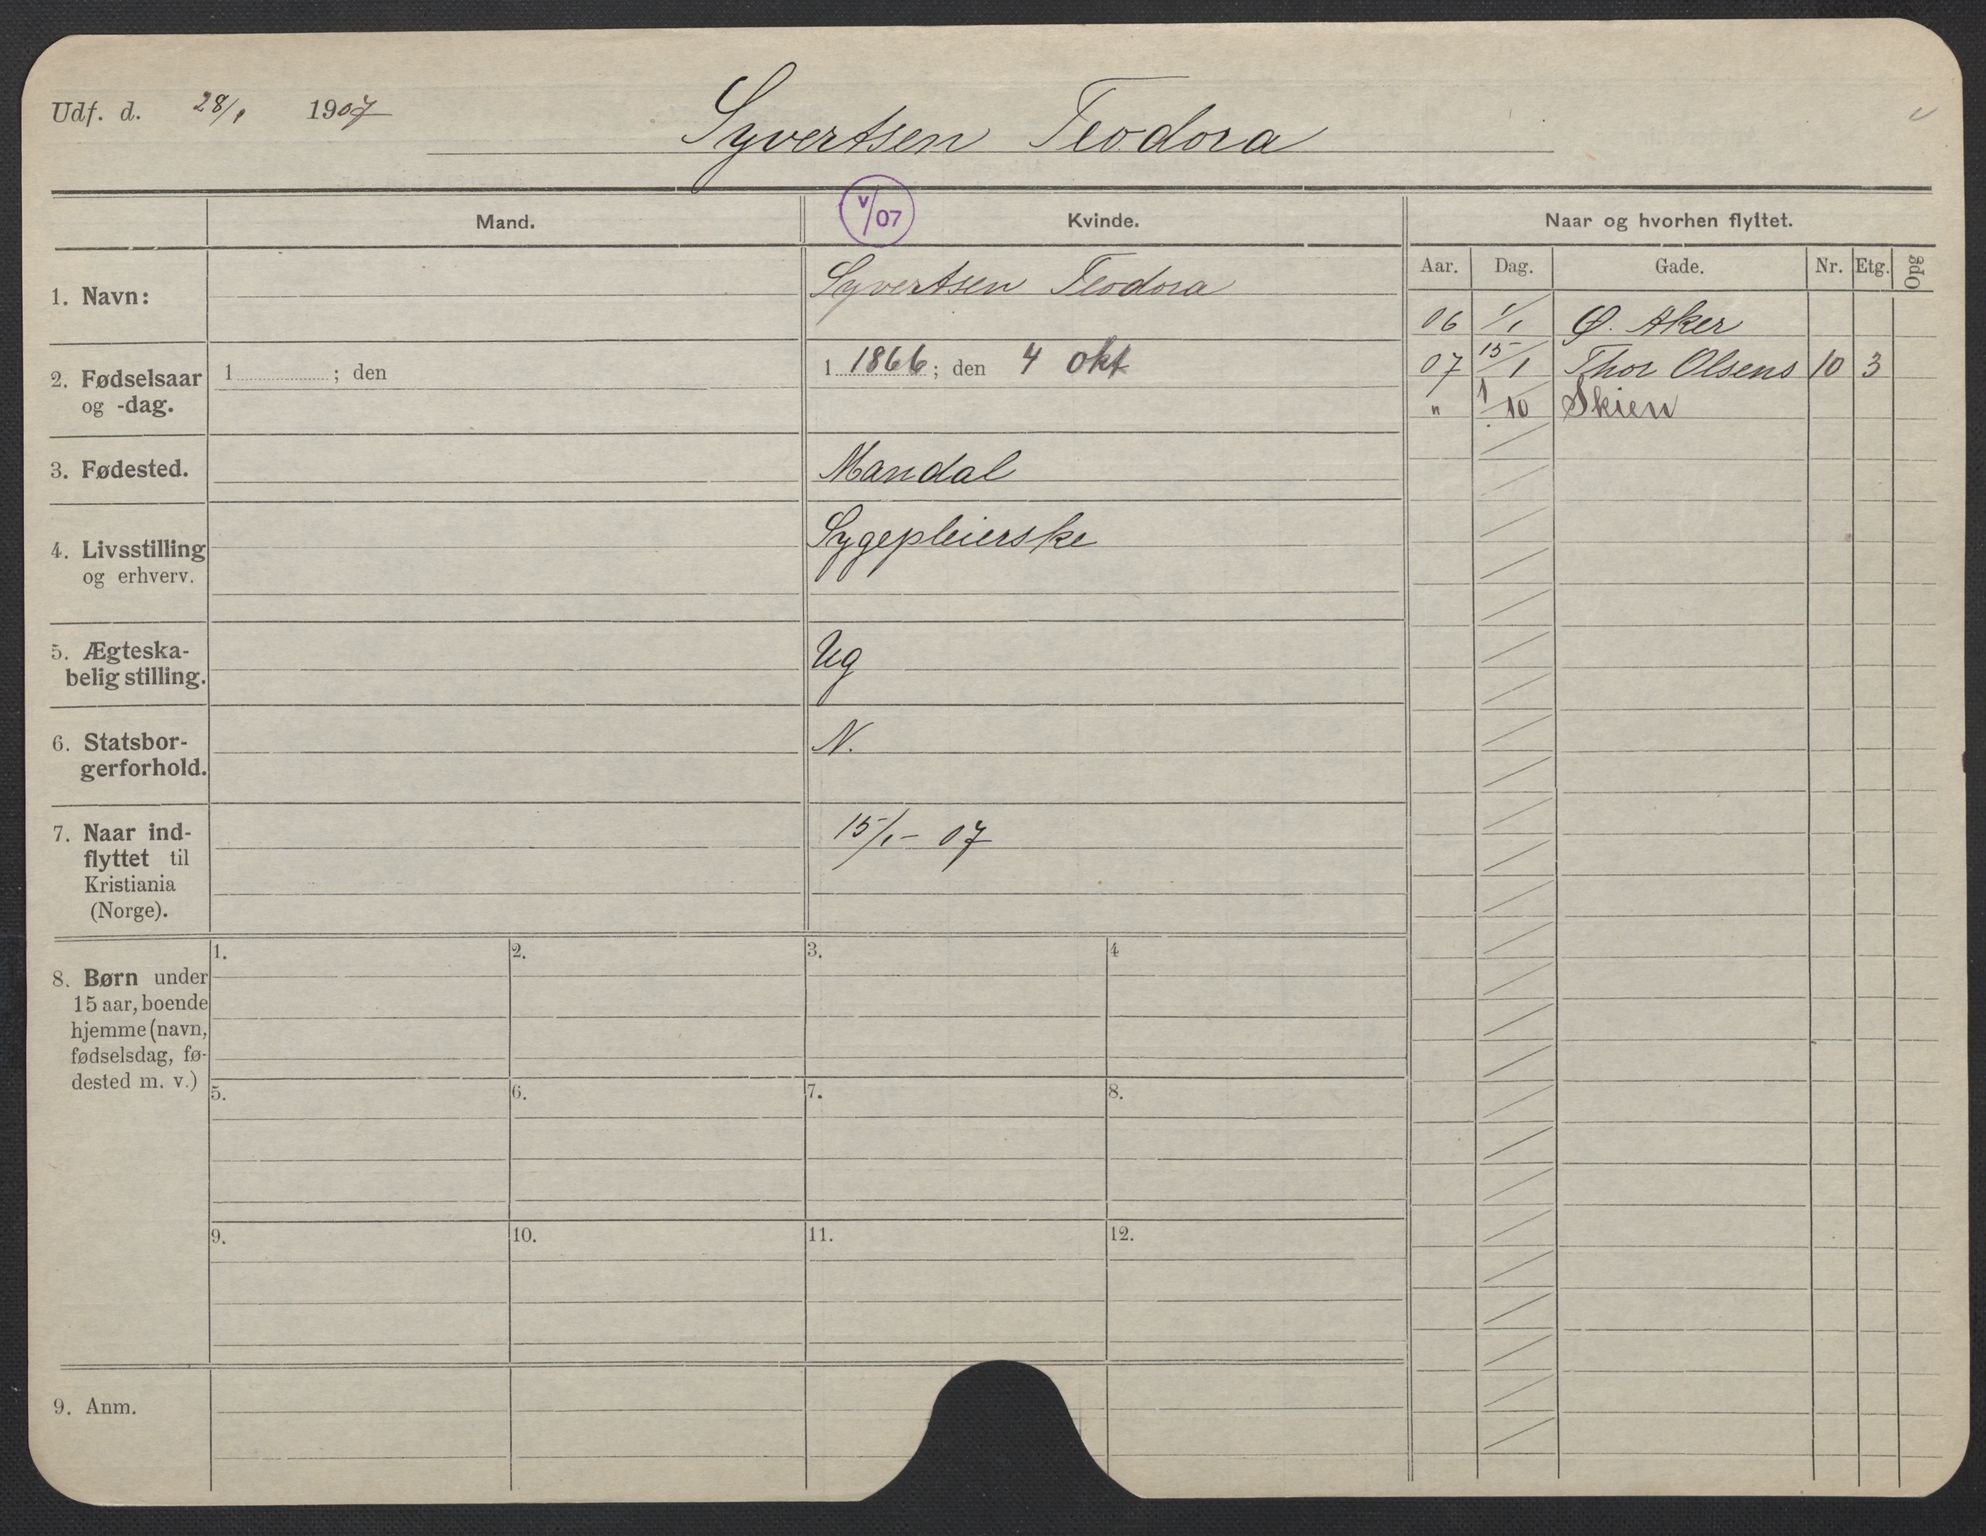 Udf. d. 28/1 1907
Syvertsen Teodora
Mand.
V/07
Kvinde.
Naar og hvorhen flyttet.
Aar. Dag. Gade. Nr. Etg. Opg
1. Navn:
Syvertsen Teodora
06 1/1 Ø. Aker
07 15/1 Thor Olsens 10 3
" 1/10 Skien
2. Fødselsaar
og -dag.
1 ; den
1 1866; den 4 okt
3. Fødested.
Mandal
4. Livsstilling
og erhverv.
Sygepleierske
5. Ægteska-
belig stilling.
Ug
6. Statsbor-
gerforhold.
N.
7. Naar ind-
flyttet til
Kristiania
(Norge).
15/1- 07
8. Børn under
15 aar, boende
hjemme (navn,
fødselsdag, fø-
dested m. v.)
1. 2. 3. 4
5. 6. 7. 8.
9. 10. 11. 12.
9. Anm.